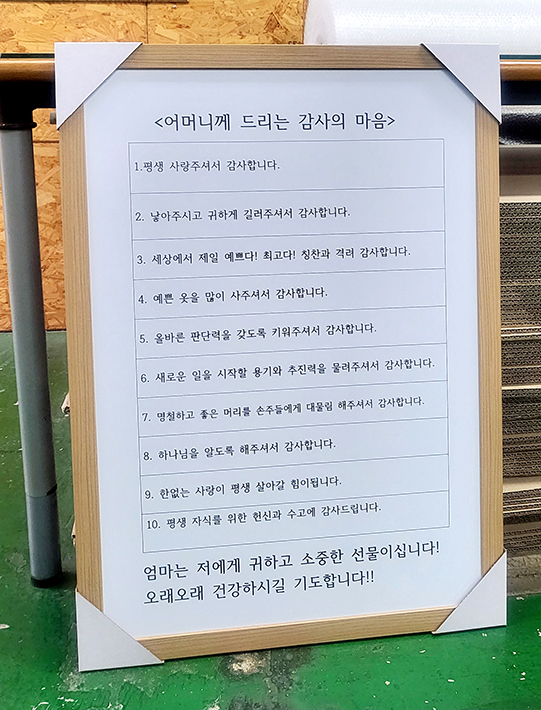 <어머니께 드리는 감사의 마음>
1.평생 사랑주셔서 감사합니다.
2. 낳아주시고 귀하게 길러주셔서 감사합니다.
3. 세상에서 제일 예쁘다! 최고다! 칭찬과 격려 감사합니다.
4. 예쁜 옷을 많이 사주셔서 감사합니다.
5. 올바른 판단력을 갖도록 키워주셔서 감사합니다.
6. 새로운 일을 시작할 용기와 추진력을 물려주셔서 감사합니다.
7. 명철하고 좋은 머리를 손주들에게 대물림 해주셔서 감사합니다.
8. 하나님을 알도록 해주셔서 감사합니다.
9. 한없는 사랑이 평생 살아갈 힘이됩니다.
10. 평생 자식를 위한 헌신과 수고에 감사드립니다.
엄마는 저에게 귀하고 소중한 선물이십니다!
오래오래 건강하시길 기도합니다!!